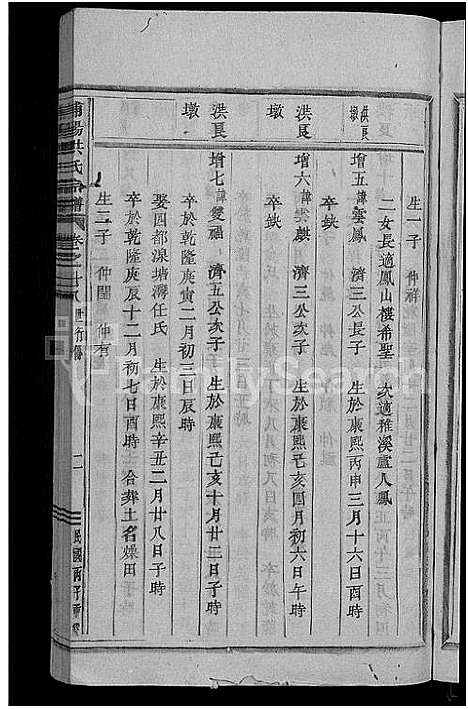 生一子　仲祥
二女長適鳳山樓希聖　次適稚溪盧人鳳
洪良墩
增五諱雲鳳　濟三公長子　生於康熙丙申三月十六日酉時
卒缺
洪良墩
增六諱雲麒　濟三公次子　生於康熙己亥四月初六日午時
卒缺
洪良墩
增七諱雙福　濟五公次子　生於康熙己亥十月廿二日子時
卒於乾隆庚寅二月初三日辰時
娶四都湶塘灣任氏　生於康熙辛丑二月廿八日子時
卒於乾隆庚辰十二月初七日酉時　合葬土名燥田
生二子　仲圖　仲有
浦陽洪氏宗譜　卷之十八　世行傳　二　民國丙子重修
FamilySearch